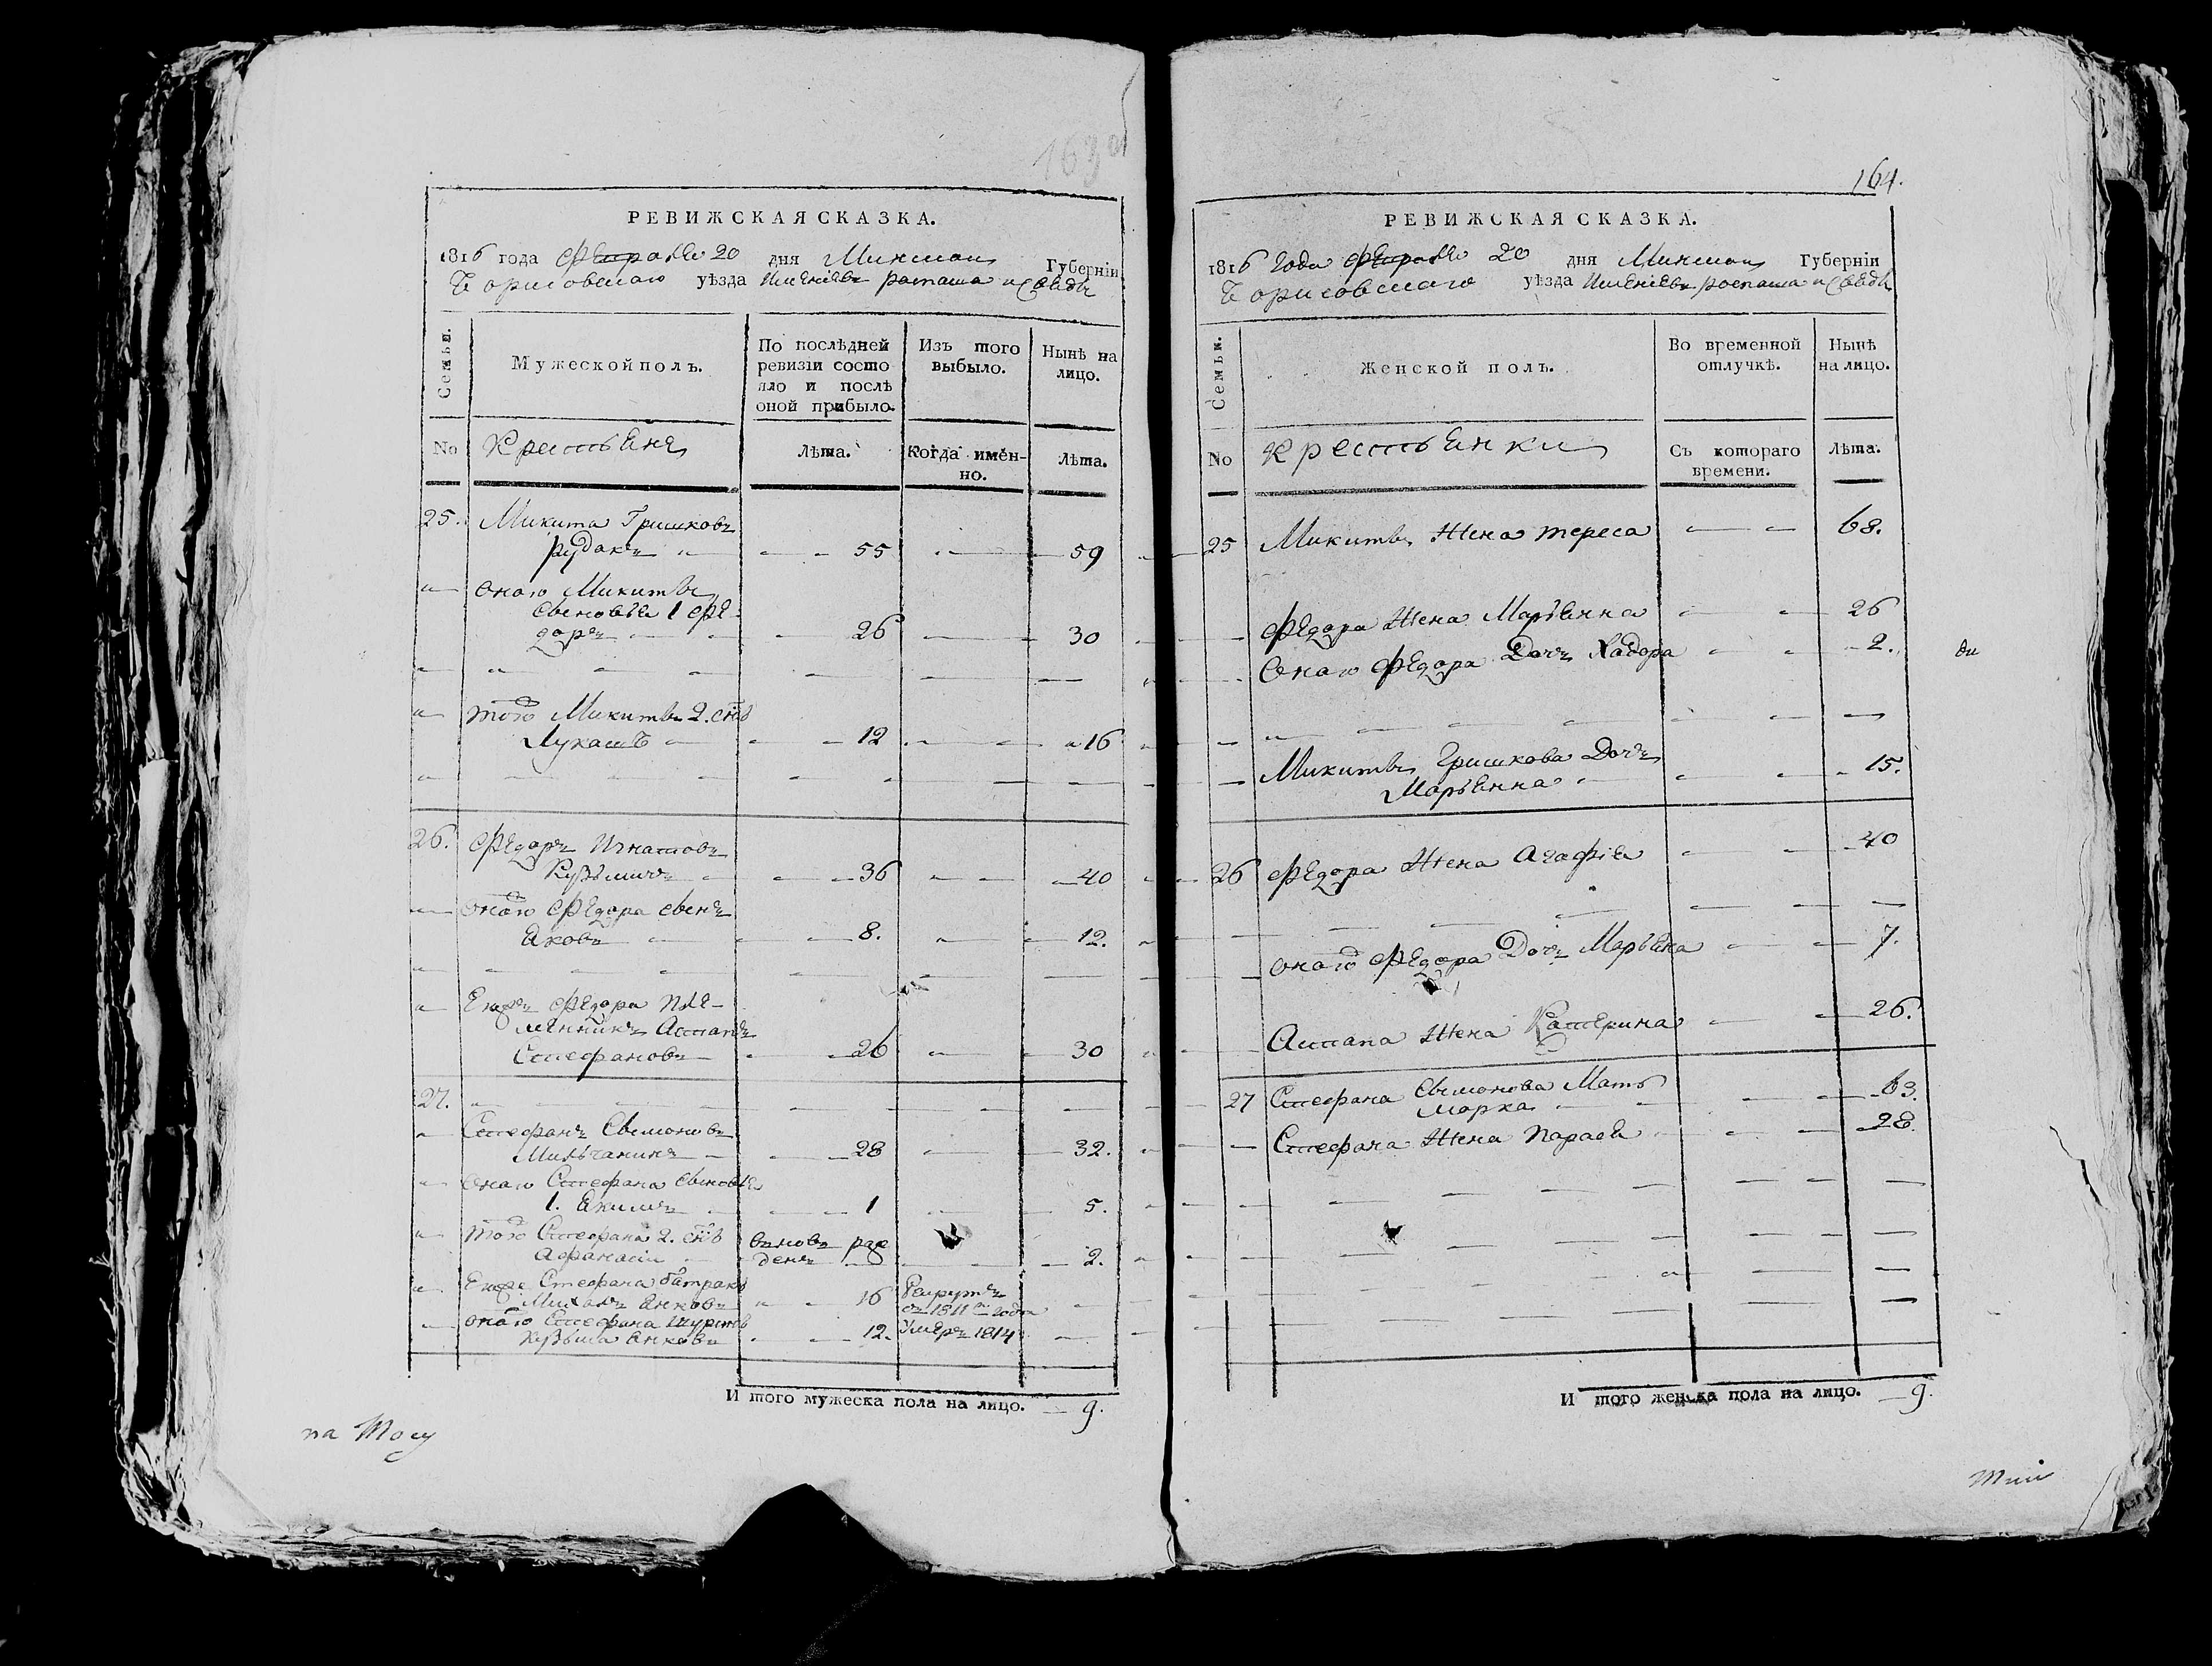 163 об
РЕВИЖСКАЯ СКАЗКА.
1816 года февраля 20 дня Минской Губерніи
Борисовскаго уѣзда
Семьи.
Мужеской полъ.
По послѣдней ревизіи состояло и послѣ оной прибыло.
Изъ того выбыло.
Нынѣ на лицо.
No
Крестьяне
Лѣта.
Когда имен-но.
Лѣта.
25. Микита Гришковъ
Рудакъ — 55 — 59
оного Микиты
сыновья 1 Фе-
доръ — 26 — 30
того Микиты 2. сынъ
Лукашъ — 12 — 16
26. Федоръ Игнатовъ
Кузьмичъ — 36 — 40
оного Федора сынъ
Яковъ — 8. — 12.
Егожъ Федора пле-
менникъ Астапъ
Стефановъ — 26 — 30
27.
Стефанъ Сымоновъ
Мильчанинъ — 28 — 32.
оного Стефана сыновья
1. Якимъ — 1 — 5.
того Стефана 2. сынъ
Афанасій вновь рожденъ — 2.
Егоже Стефана
Михалъ Янковъ — 16 Рекрутъ
съ 1811 года
оного Стефана шуринъ
Кузьма Янковъ — 12. Умеръ 1814
И того мужеска пола на лицо. — 9.
164.
РЕВИЖСКАЯ СКАЗКА.
1816 Года февраля 20 дня Минской Губерніи
Борисовскаго уѣзда
Семьи.
Женской полъ.
Во временной отлучкѣ.
Нынѣ на лицо.
No
Крестьянки
Съ котораго времени.
Лѣта.
25 Микиты жена Тереса — 68.
Федора жена Марьянна — 26
оного Федора дочь Хадора — 2.
Микиты Гришкова дочь
Марьянна — 15.
26 Федора жена Агафія — 40
оного Федора дочь Марьяна — 7.
Астапа жена Катерина — 26.
27 Стефана Сымонова мать
Марка — 63.
Стефана жена Парася — 28.
И того женска пола на лицо. — 9.